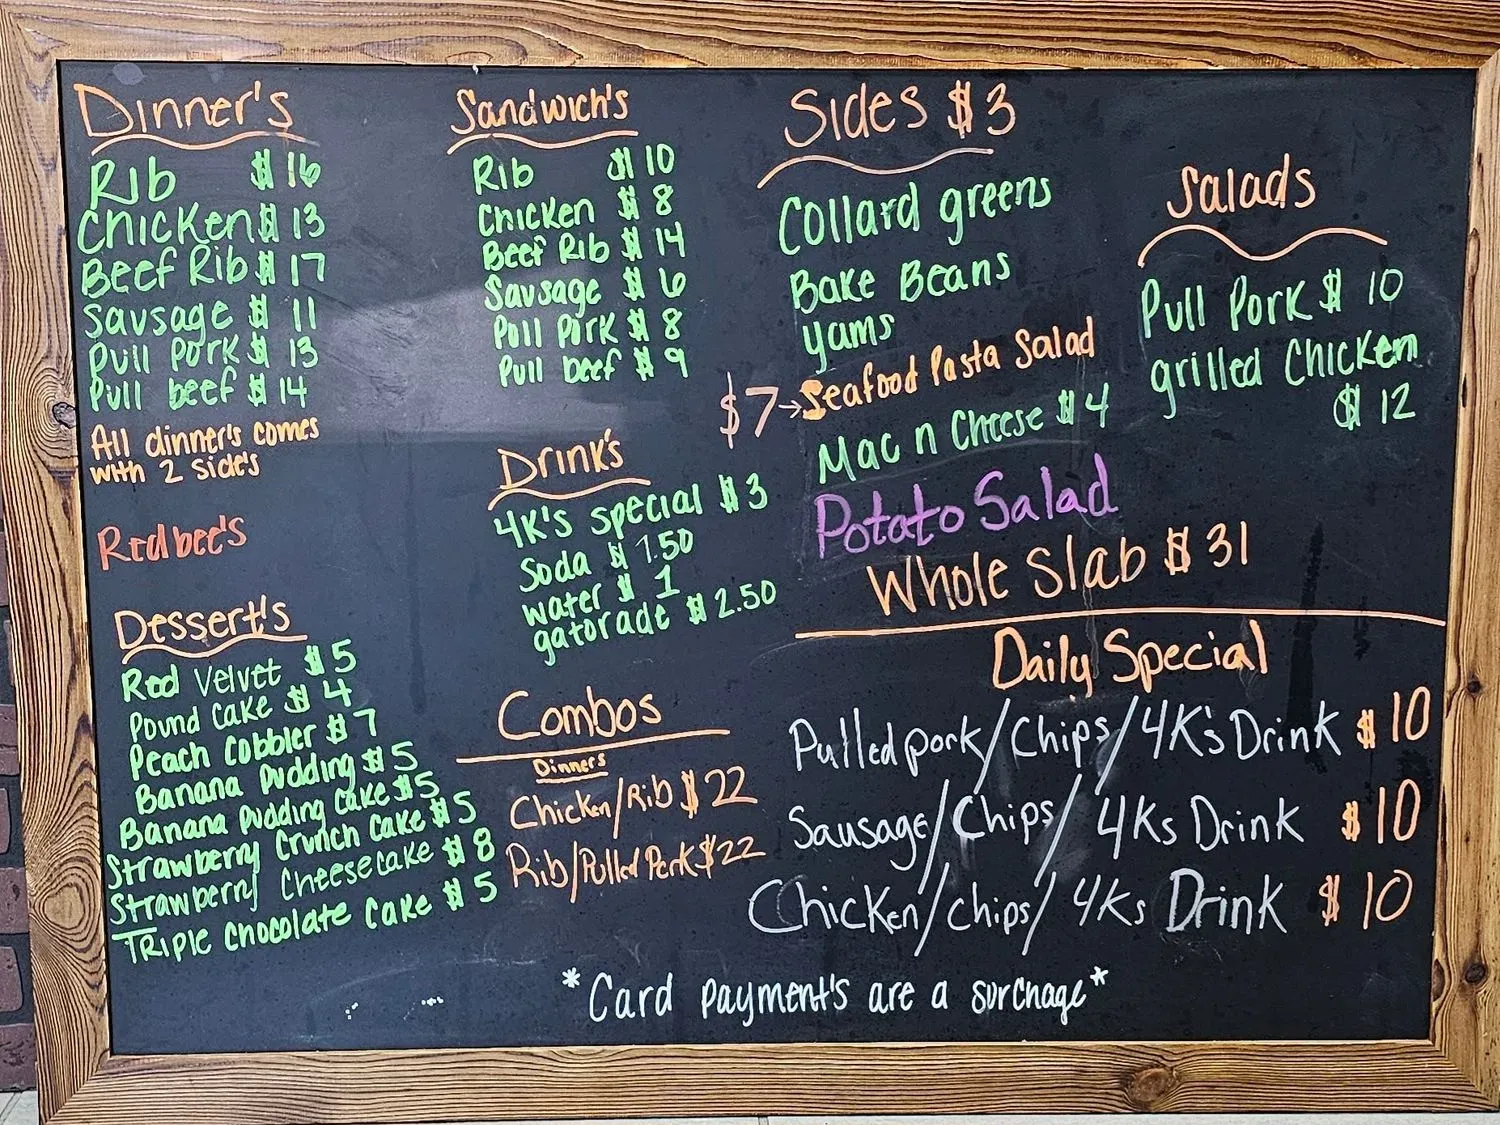 Dinner's
Rib $ 16
Chicken $ 13
Beef Rib $ 17
Sausage $ 11
Pull Pork $ 13
Pull beef $ 14
All dinner's comes
with 2 side's
Redbee's
Dessert's
Red Velvet $ 5
Pound Cake $ 4
Peach Cobbler $ 7
Banana Pudding $ 5
Banana Pudding Cake $ 5
Strawberry Crunch Cake $ 5
Strawberry Cheesecake $ 8
Triple Chocolate Cake $ 5
Sandwich's
Rib $ 10
Chicken $ 8
Beef Rib $ 14
Sausage $ 6
Pull Pork $ 8
Pull beef $ 9
Drink's
4K's special $ 3
Soda $ 1.50
water $ 1
gatorade $ 2.50
Combos
Dinners
Chicken/Rib $ 22
Rib/Pulled Pork $22
Sides $ 3
Collard greens
Bake Beans
Yams
$7 → Seafood Pasta Salad
Mac n Cheese $ 4
Potato Salad
Whole Slab $ 31
Salads
Pull Pork $ 10
grilled Chicken
$ 12
Daily Special
Pulled pork/Chips/4K's Drink $ 10
Sausage/Chips/4Ks Drink $ 10
Chicken/chips/4Ks Drink $ 10
*Card payment's are a surchage*